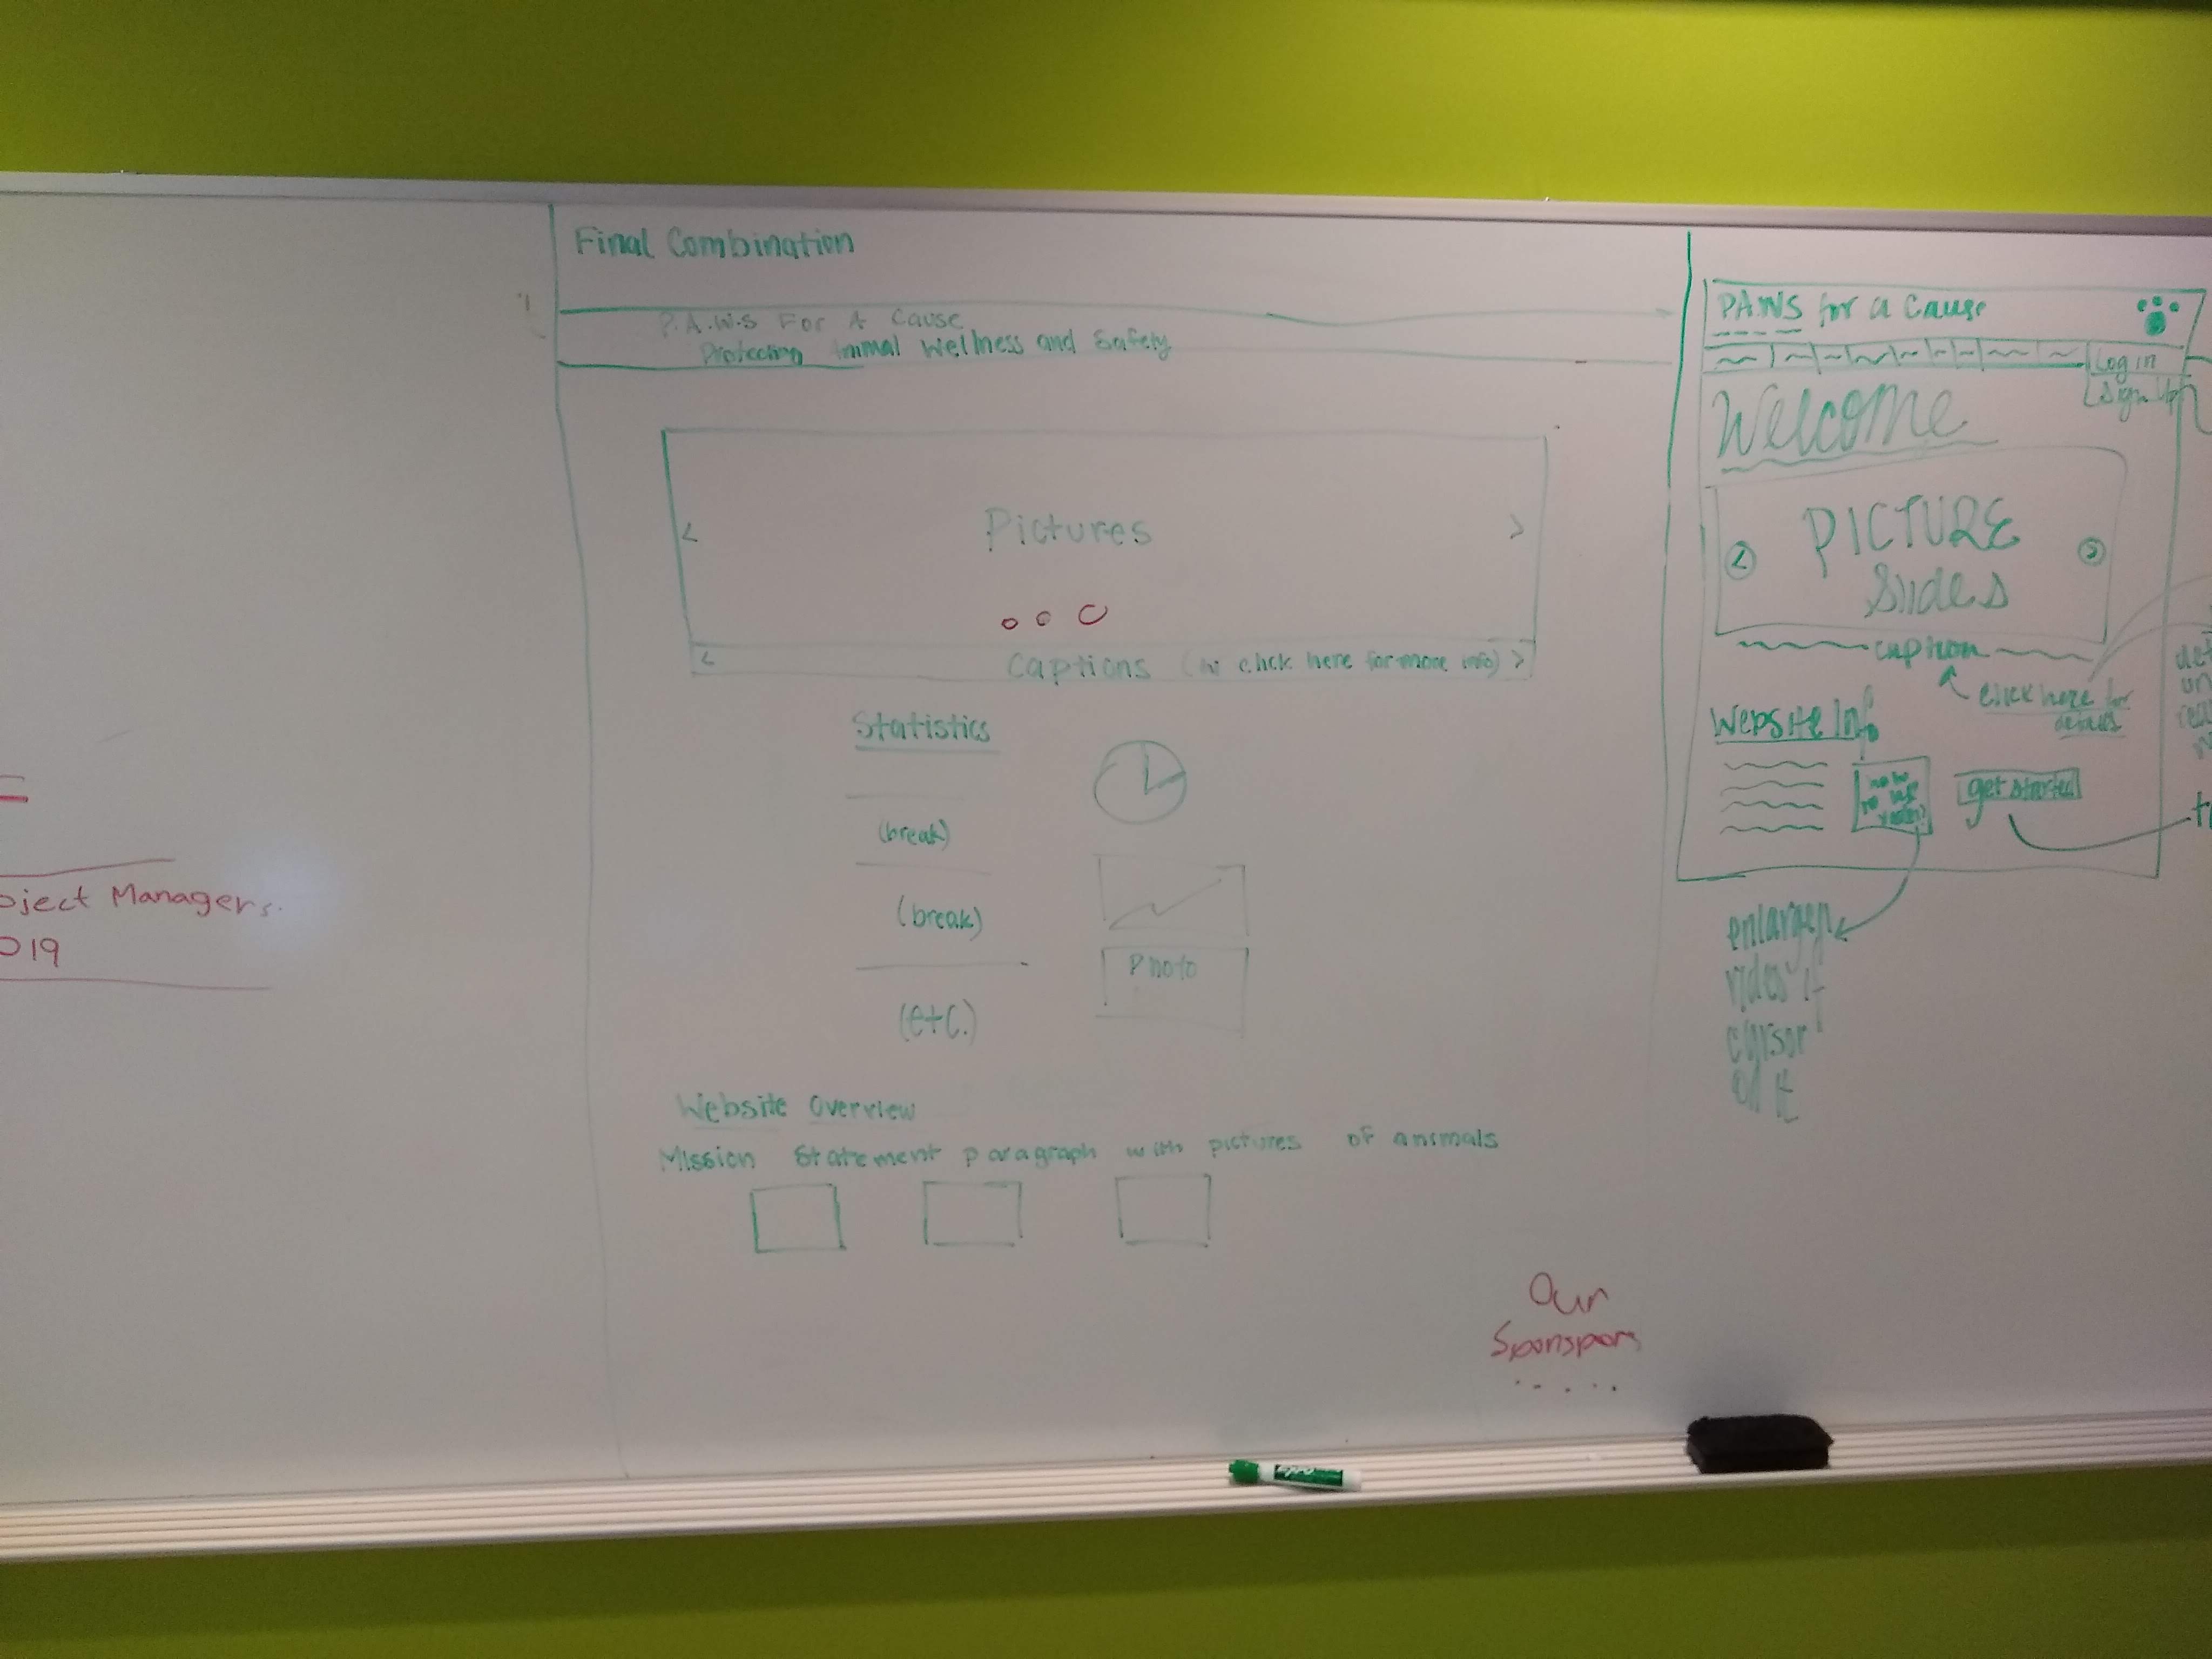 Final Combination
P.A.W.S For A Cause
Protecting Animal Wellness and Safety
< Pictures >
< Captions (hi click here for more info) >
Statistics
(break)
(break)
(etc.)
Photo
Website Overview
Mission Statement paragraph with pictures of animals
Our
Sponspors
.....
oject Managers.
019
PAWS for a Cause
Log in
Sign Up
Welcome
< PICTURE >
Slides
caption
click here for
details
Website Info
get started
enlargen
video if
cursor
on it